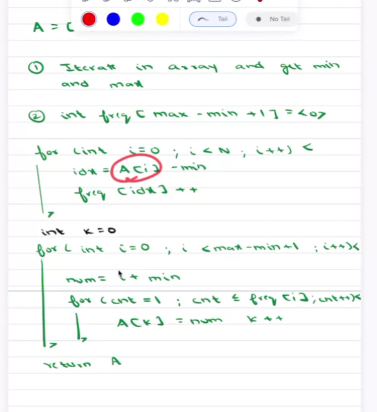 A = [
Tail
No Tail
① Iterate in array and get min
and max
② int freq [ max - min + 1 ] = {0}
for (int i=0 ; i < N ; i++) {
idx = A[i] - min
freq [idx] ++
}
int k=0
for ( int i=0 ; i < max-min+1 ; i++){
num = i + min
for (cnt =1 ; cnt ≤ freq [i] ; cnt++){
A[k] = num k ++
}
}
return A